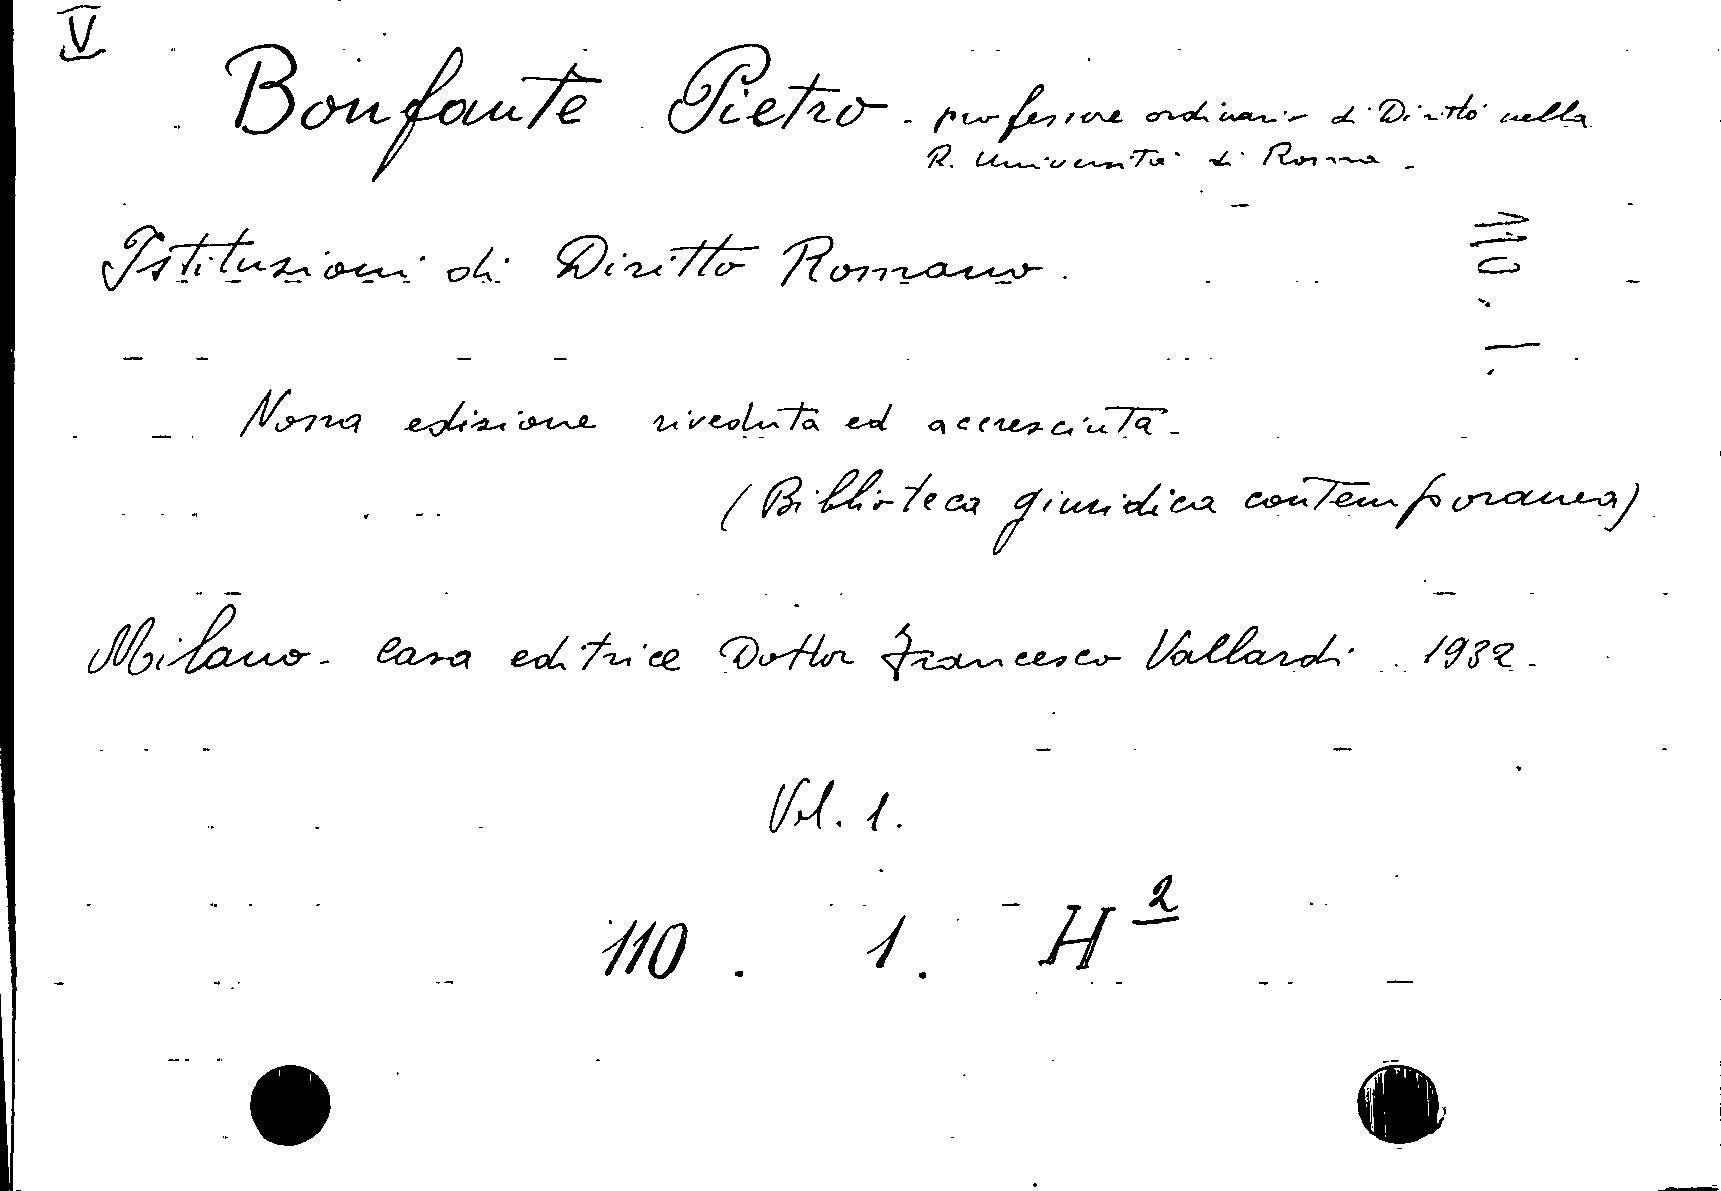 V
Bonfante Pietro - professore ordinario di Diritto nella
R. Università di Roma -
Istituzioni di Diritto Romano.
Nona edizione riveduta ed accresciuta -
(Biblioteca giuridica contemporanea)
Milano - Casa editrice Dottor Francesco Vallardi - 1932 -
Vol. 1.
110 . 1 . H 2